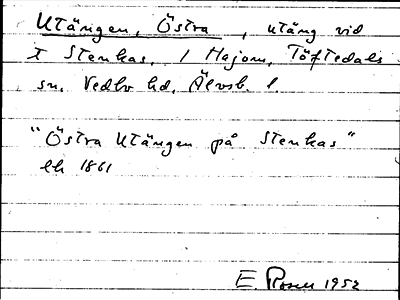 Utängen, Östra, utäng vid
t Stenkas, 1 Hajom, Töftedals
sn, Vedbo hd, Älvsb. l.
"Östra Utängen på Stenkas"
lh 1861
E. Rosell 1952